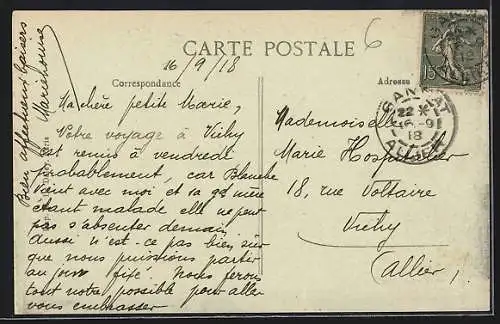 CARTE POSTALE
6
16/9/18
Correspondance
Adresse
15
GANNAT
22 *
16-9
18
ALLIER
Ma chère petite Marie,
Votre voyage à Vichy
est remis à vendredi
probablement, car Blanche
vient avec moi et sa gd mère
étant malade elle ne peut
pas s'absenter demain
aussi n'est-ce pas bien sûr
que nous puissions partir
au jour fixé. Nous ferons
tout notre possible pour aller
vous embrasser
Bien affectueux baisers
Mademoiselle
Marie Hospitalier
18, rue Voltaire
Vichy
(Allier)